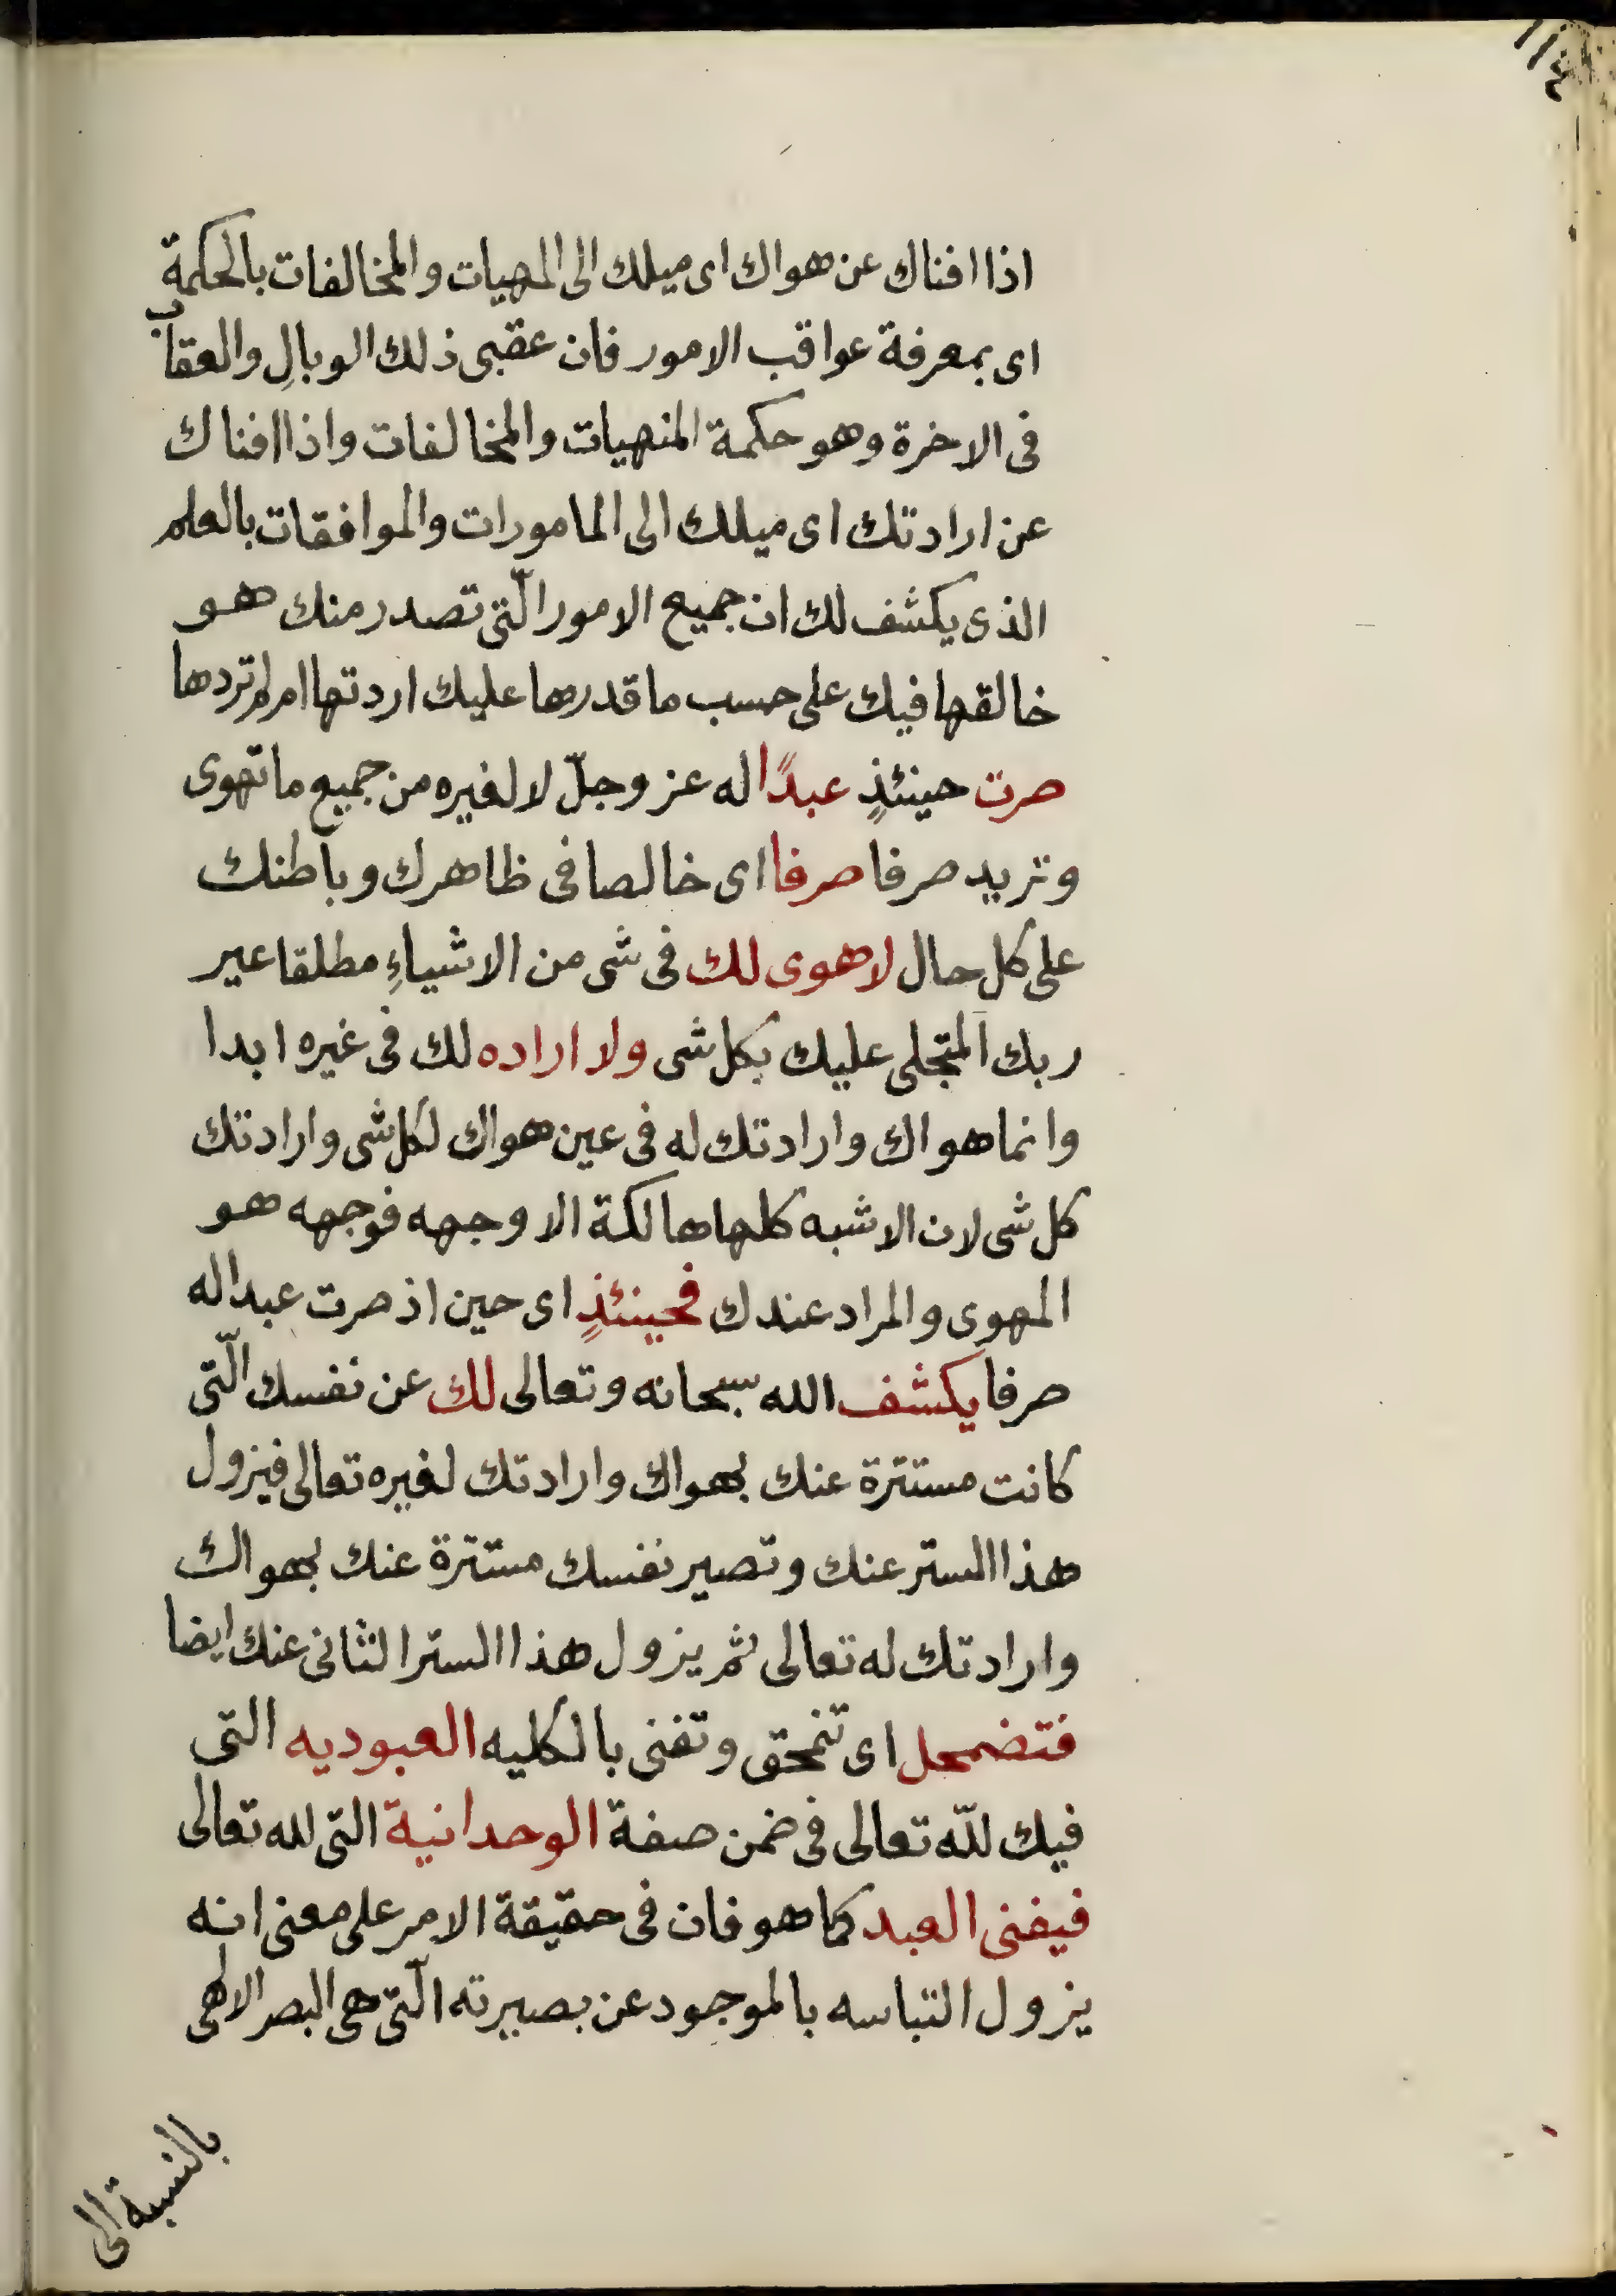 ١١٤
اذا افناك عن هواك اى ميلك الى المهيات والمخالفات بالحكمة
اى بمعرفة عواقب الامور فان عقبى ذلك الوبالِ والعقاب
فى الاخرة وهو حكمة المنهيات والمخالفات واذا افناك
عن ارادتك اى ميلك الى المامورات والموافقات بالعلم
الذى يكشف لك ان جميع الامور الّتى تصدر منك هو
خالقها فيك على حسب ما قدرها عليك اردتها ام لم تردها
صرت حينئذٍ عبدًا له عز وجلّ لا لغيره من جميع ما تهوى
وتريد صرفا صرفا اى خالصا فى ظاهرك وباطنك
على كل حال لا هوى لك فى شى من الاشياءِ مطلقا عير
ربك المتجلى عليك بكل شى ولا اراده لك فى غيره ابدا
وانما هواك وارادتك له فى عين هواك لكل شى وارادتك
كل شى لان الاشبه كلها هالكة الا وجهه فوجهه هو
المهوى والمراد عندك فحينئذٍ اى حين اذ صرت عبدا له
صرفا يكشف الله سبحانه وتعالى لك عن نفسك الّتى
كانت مستترة عنك بهواك وارادتك لغيره تعالى فيزول
هذا الستر عنك وتصير نفسك مستترة عنك بهواك
وارادتك له تعالى ثم يزول هذا الستر الثانى عنك ايضا
فتضمحل اى تنمحق وتفنى بالكليه العبوديه التى
فيك للّه تعالى فى ضمن صفة الوحدانية التى لله تعالى
فيفنى العبد كما هو فان فى حقيقة الامر على معنى انه
يزول التباسه بالموجود عن بصيرته الّتى هى البصر الالهى
بالنسبة الى